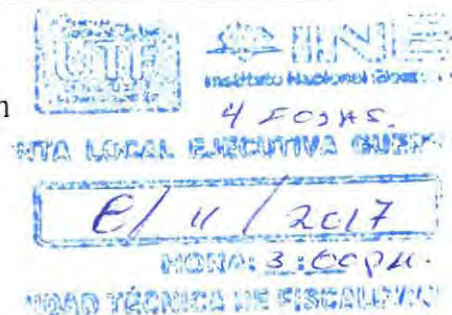 UTF INE
Instituto Nacional
4 FOJAS.
NTA LOCAL EJECUTIVA GUER
/ 11 / 2017
HORA: 3:00 PM.
TÉCNICA DE FISCALIZ